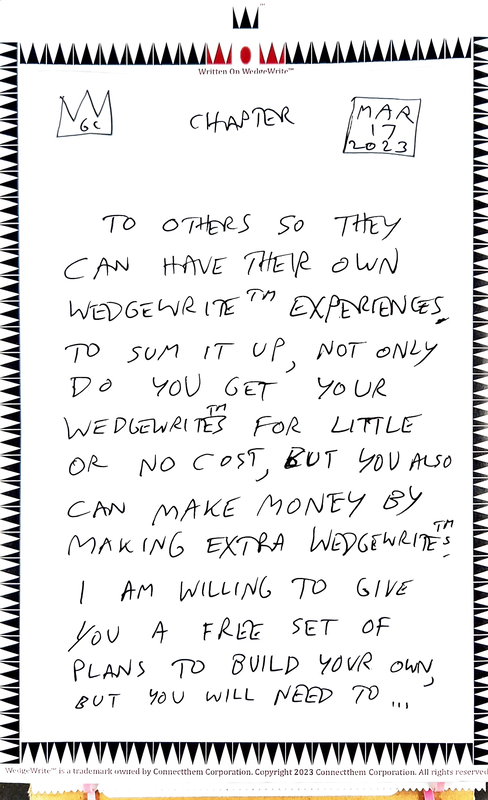 Written On WedgeWrite™
GC
CHAPTER
MAR
17
2023
TO OTHERS SO THEY
CAN HAVE THEIR OWN
WEDGEWRITE™ EXPERIENCES.
TO SUM IT UP, NOT ONLY
DO YOU GET YOUR
WEDGEWRITE™S FOR LITTLE
OR NO COST, BUT YOU ALSO
CAN MAKE MONEY BY
MAKING EXTRA WEDGEWRITE™S.
I AM WILLING TO GIVE
YOU A FREE SET OF
PLANS TO BUILD YOUR OWN,
BUT YOU WILL NEED TO ...
WedgeWrite™ is a trademark owned by Connectthem Corporation. Copyright 2023 Connectthem Corporation. All rights reserved